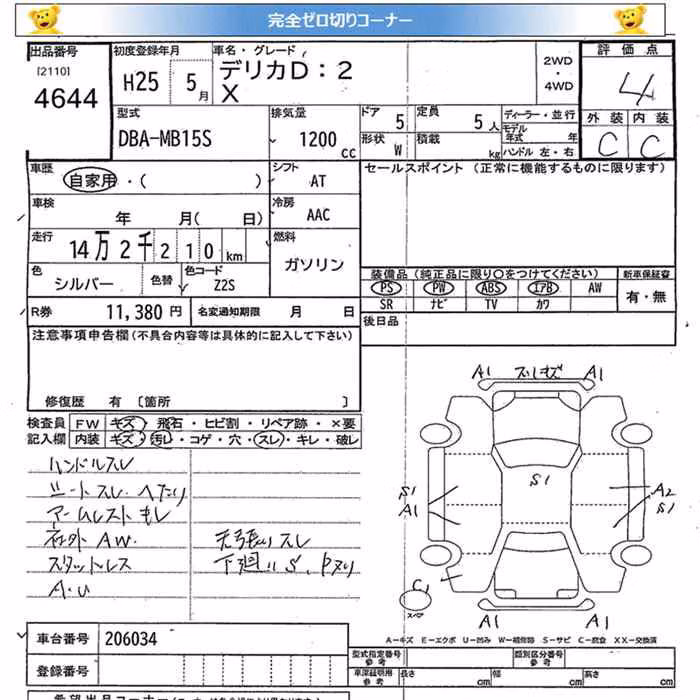 完全ゼロ切りコーナー
出品番号
[2110]
4644
初度登録年月
H25 5月
車名・グレード
デリカD:2
X
2WD
・
4WD
評価点
4
外装 内装
C C
型式
DBA-MB15S
排気量
1200 cc
ドア
5
定員
5人
形状
W
積載
kg
ディーラー・並行
モデル年式 年
ハンドル 左・右
車歴
自家用・( )
シフト
AT
セールスポイント (正常に機能するものに限ります)
車検
年 月( 日)
冷房
AAC
走行
14万2千210km
燃料
ガソリン
色
シルバー
色替
色コード
Z2S
装備品(純正品に限り○をつけてください)
PS PW ABS エアB AW
SR ナビ TV カワ
新車保証書
有・無
R券 11,380円
名変通知期限 月 日
後日品
注意事項申告欄(不具合内容等は具体的に記入して下さい)
修復歴 有 〔箇所 〕
検査員
記入欄
FW キズ・飛石・ヒビ割・リペア跡・×要
内装 キズ・汚レ・コゲ・穴・スレ・キレ・破レ
ハンドルスレ
シートスレ・ヘタリ
アームレストキレ
社外AW.
スタットレス
A・U
天張リスレ
下廻リS,Pヌリ
A1 スリキズ A1
S1
S1
A1
A2
S1
C1
スペア
A1 A1
A-キズ E-エクボ U-凹み W-補修跡 S-サビ C-腐食 XX-交換済
車台番号 206034
登録番号
型式指定番号
参考
類別区分番号
参考
車検証明用
参考
長さ cm 幅 cm 高さ cm
希望出品コーナー